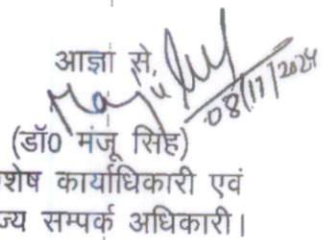 आज्ञा से,
08/11/2024
(डॉ0 मंजू सिंह)
शेष कार्याधिकारी एवं
ज्य सम्पर्क अधिकारी।